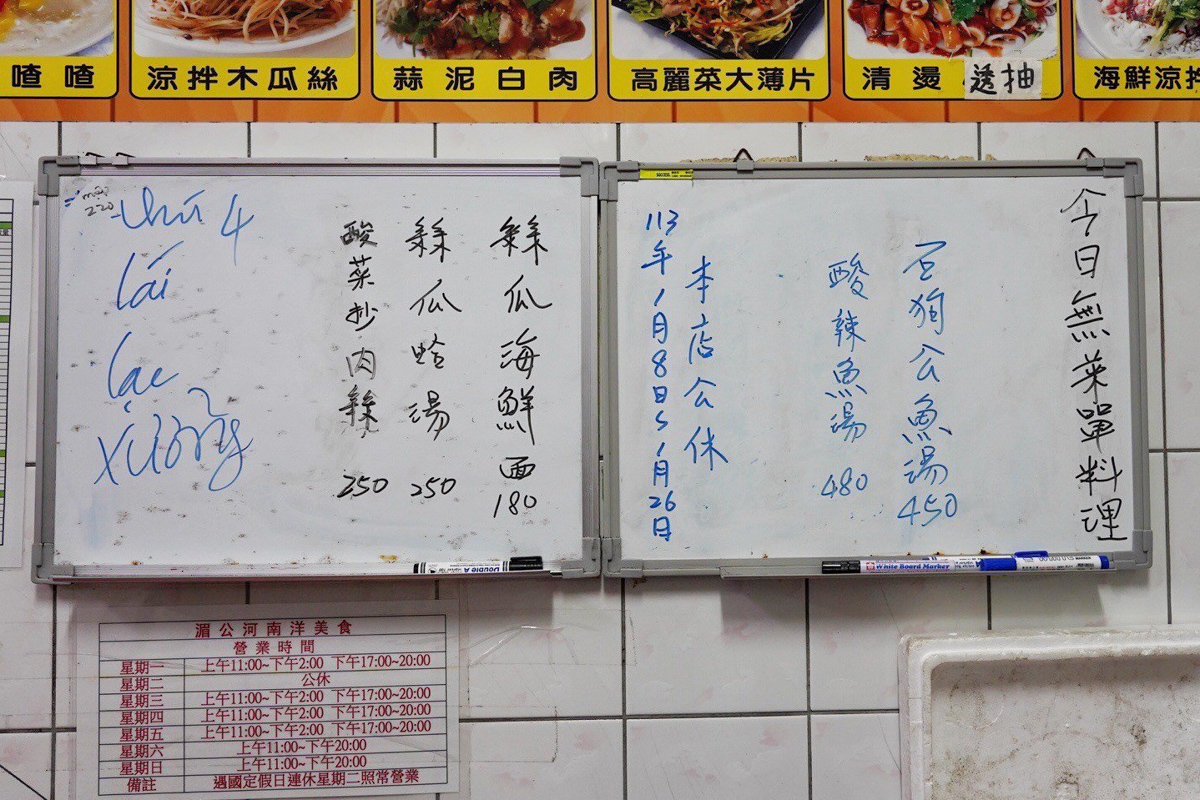 喳喳
涼拌木瓜絲
蒜泥白肉
高麗菜大薄片
清燙透抽
海鮮涼拌
今日無菜單料理
豆狗公魚湯450
酸辣魚湯480
本店公休
113年1月8日~1月26日
絲瓜海鮮面180
絲瓜蛤湯250
酸菜炒肉絲250
220
thứ 4
lái
lạc
xưởng
Double A
White Board Marker
湄公河南洋美食
營業時間
星期一 上午11:00~下午2:00 下午17:00~20:00
星期二 公休
星期三 上午11:00~下午2:00 下午17:00~20:00
星期四 上午11:00~下午2:00 下午17:00~20:00
星期五 上午11:00~下午2:00 下午17:00~20:00
星期六 上午11:00~下午20:00
星期日 上午11:00~下午20:00
備註 遇國定假日連休星期二照常營業